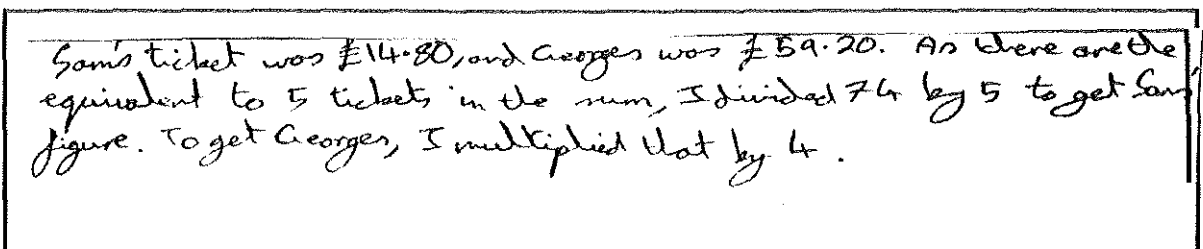 Sam's ticket was £14.80, and Georges was £59.20. As there are the
equivalent to 5 tickets in the sum, I divided 74 by 5 to get Sam's
figure. To get Georges, I multiplied that by 4.